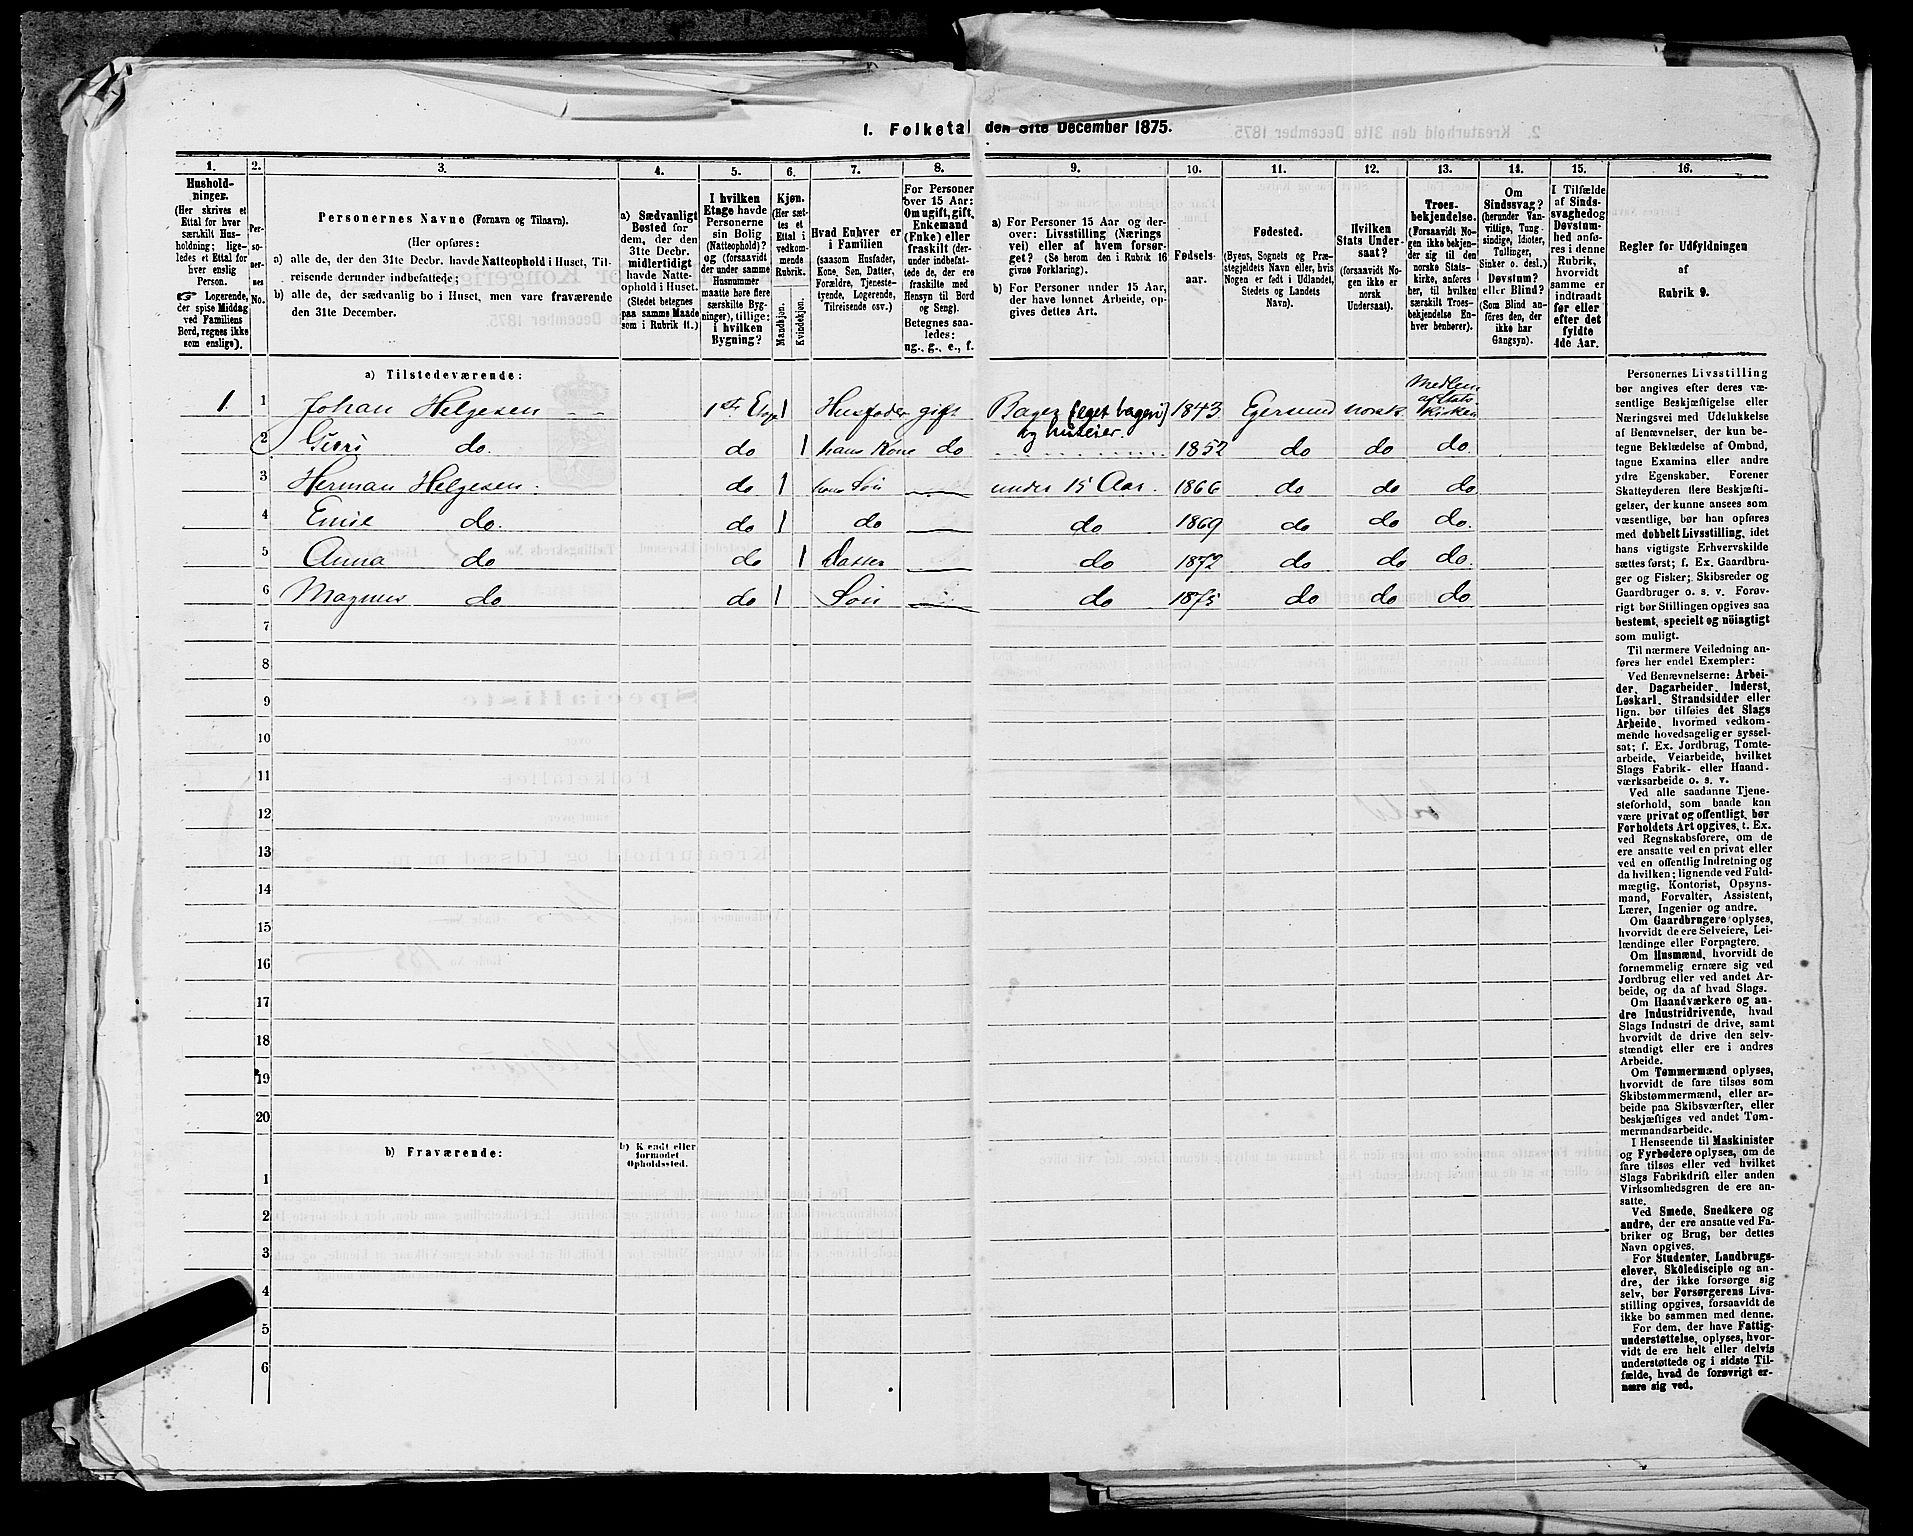 1. Folketal den 31te December 1875.
1. 2. 3. 4. 5. 6. 7. 8. 9. 10. 11. 12. 13. 14. 15. 16.
Hushold-
ninger.
(Her skrives et
Ettal for hver
særskilt Hus-
holdning; lige-
ledes et Ettal for
hver enslig
Person.
☞ Logerende,
der spise Middag
ved Familiens
Bord, regnes ikke
som enslige).
Per-
so-
ner-
nes
No.
Personernes Navne (Fornavn og Tilnavn).
(Her opføres:
a) alle de, der den 31te Decbr. havde Natteophold i Huset, Til-
reisende derunder indbefattede;
b) alle de, der sædvanlig bo i Huset, men vare fraværende
den 31te December.
a) Sædvanligt
Bosted for
dem, der den
31te Decbr.
midlertidigt
havde Natte-
ophold i Huset.
(Stedet betegnes
paa samme Maade
som i Rubrik 11.)
I hvilken
Etage havde
Personerne
sin Bolig
(Natteophold)?
og (forsaavidt
der under samme
Husnummer
maatte høre flere
særskilte Byg-
ninger), tillige:
i hvilken
Bygning?
Kjøn.
(Her sæt-
tes et
Ettal i
vedkom-
mende
Rubrik.
Mandkjøn.
Kvindekjøn.
Hvad Enhver er
i Familien
(saasom Husfader,
Kone, Søn, Datter,
Forældre, Tjeneste-
tyende, Logerende,
Tilreisende osv.)
For Personer
over 15 Aar:
Om ugift, gift,
Enkemand
(Enke) eller
fraskilt (der-
under indbefat-
tede de, der ere
fraskilte med
Hensyn til Bord
og Seng).
Betegnes saa-
ledes:
ug., g., e., f.
a) For Personer 15 Aar og der-
over: Livsstilling (Nærings
vei) eller af hvem forsør-
get? (Se herom den i Rubrik 16
givne Forklaring).
b) For Personer under 15 Aar,
der have lønnet Arbeide, op-
gives dettes Art.
Fødsels-
aar.
Fødested.
(Byens, Sognets og Præ-
stegjeldets Navn eller, hvis
Nogen er født i Udlandet,
Stedets og Landets
Navn).
Hvilken
Stats Under-
saat?
(forsaavidt No-
gen ikke er
norsk
Undersaat).
Troes-
bekjendelse.
(Forsaavidt No-
gen ikke bekjen-
der sig til den
norske Stats-
kirke, anføres
her, til hvilken
særskilt Troes-
bekjendelse En-
hver henhører).
Om
Sindssvag?
(herunder Van-
vittige, Tung-
sindige, Idioter,
Tullinger,
Sinker o. desl.)
Døvstum?
eller Blind?
(Som Blind an-
føres den, der
ikke har
Gangsyn).
I Tilfælde
af Sinds-
svaghed og
Døvstum-
hed anfø-
res i denne
Rubrik,
hvorvidt
samme er
indtraadt
før eller
efter det
fyldte
4de Aar.
Regler for Udfyldningen
af
Rubrik 9.
a) Tilstedeværende:
1 1 Johan Helgesen 1ste Etage 1 Husfader gift Bager (eget bageri) og huseier. 1843 Egersund norsk Medlem af Statskirken
2 Gurri do. do 1 hans Kone do 1852 do do do.
3 Herman Helgesen. do 1 hans Søn under 15 Aar. 1866 do do do
4 Emil do. do 1 do do 1869 do do do.
5 Anna do do 1 do 1872 do do do.
6 Magnus do do 1 Søn do 1875 do do do
7
8
9
10
11
12
13
14
15
16
17
18
19
20
b) Fraværende:
b) Kendt eller
formodet
Opholdssted.
1
2
3
4
5
6
Personernes Livsstilling
bør angives efter deres væ-
sentlige Beskjæftigelse eller
Næringsvei med Udelukkelse
af Benævnelser, der kun be-
tegne Beklædelse af Ombud,
tagne Examina eller andre
ydre Egenskaber. Forener
Skatteyderen flere Beskjæfti-
gelser, der kunne ansees som
væsentlige, bør han opføres
med dobbelt Livsstilling, idet
hans vigtigste Erhvervskilde
sættes først; f. Ex. Gaardbru-
ger og Fisker; Skibsreder og
Gaardbruger o. s. v. Forøv-
rigt bør Stillingen opgives saa
bestemt, specielt og nöiagtigt
som muligt.
Til nærmere Veiledning an-
føres her endel Exempler:
Ved Benævnelserne: Arbei-
der, Dagarbeider, Inderst,
Løskarl, Strandsidder eller
lign. bør tilføies det Slags
Arbeide, hvormed vedkom-
mende hovedsagelig er syssel-
sat; f. Ex. Jordbrug, Tomte-
arbeide, Veiarbeide, hvilket
Slags Fabrik- eller Haand-
værksarbeide o. s. v.
Ved alle saadanne Tjene-
steforhold, som baade kan
være privat og offentligt, bør
Forholdets Art opgives, t. Ex.
ved Regnskabsførere, om de
ere ansatte ved en privat eller
ved en offentlig Indretning og
da hvilken; lignende ved Fuld-
mægtig, Kontorist, Opsyns-
mand, Forvalter, Assistent,
Lærer, Ingeniør og andre.
Om Gaardbrugere oplyses,
hvorvidt de ere Selveiere, Lei-
lændinge eller Forpagtere.
Om Husmænd, hvorvidt de
fornemmelig ernære sig ved
Jordbrug eller ved andet Ar-
beide, og da af hvad Slags.
Om Haandværkere og an-
dre Industridrivende, hvad
Slags Industri de drive, samt
hvorvidt de drive den selv-
stændigt eller ere i andres
Arbeide.
Om Tømmermænd oplyses,
hvorvidt de fare tilsøs som
Skibstømmermænd, eller ar-
beide paa Skibsværfter, eller
beskjæftiges ved andet Tøm-
mermandsarbeide.
I Henseende til Maskinister
og Fyrbødere oplyses, om de
fare tilsøs eller ved hvilket
Slags Fabrikdrift eller anden
Virksomhedsgren de ere an-
satte.
Ved Smede, Snedkere og
andre, der ere ansatte ved Fa-
briker og Brug, bør dettes
Navn opgives.
For Studenter, Landbrugs-
elever, Skoledisciple og an-
dre, der ikke forsørge sig
selv, bør Forsørgerens Livs-
stilling opgives, forsaavidt de
ikke bo sammen med denne.
For dem, der have Fattig-
understøttelse, oplyses, hvor-
vidt de ere helt eller delvis
understøttede og i sidste Til-
fælde, hvad de forøvrigt er-
nære sig ved.